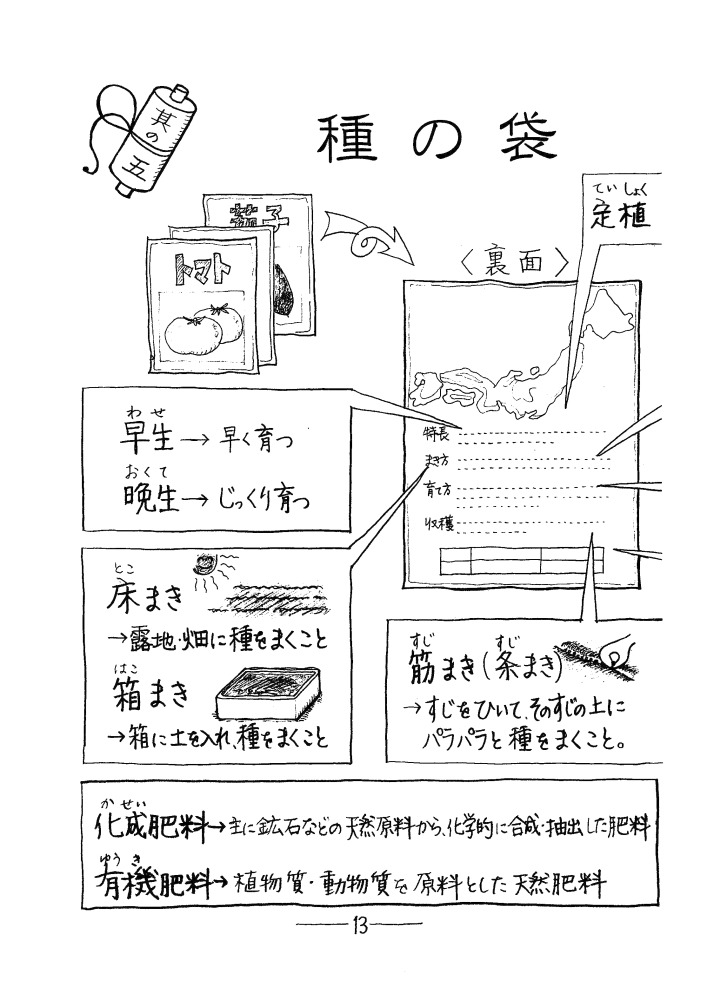 其の五
種の袋
ていしょく
定植
茄子
トマト
〈裏面〉
特長
まき方
育て方
収穫
わせ
早生→早く育つ
おくて
晩生→じっくり育つ
とこ
床まき
→露地・畑に種をまくこと
はこ
箱まき
→箱に土を入れ、種をまくこと
すじ すじ
筋まき(条まき)
→すじをひいて、そのすじの上に
パラパラと種をまくこと。
かせい
化成肥料→主に鉱石などの天然原料から、化学的に合成・抽出した肥料
ゆうき
有機肥料→植物質・動物質を原料とした天然肥料
13